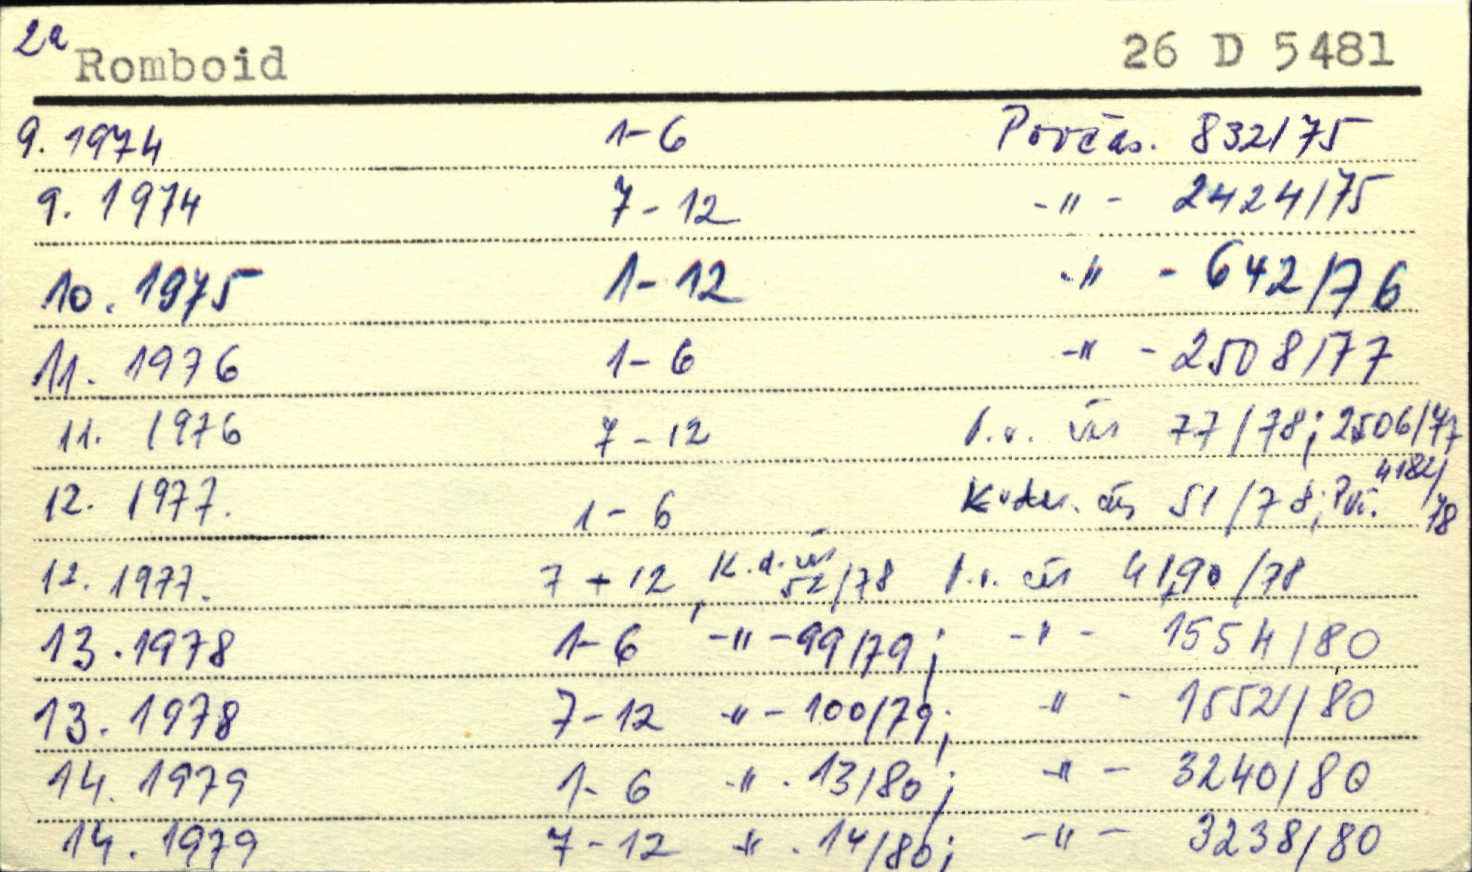 2a Romboid 26 D 5481
9. 1974 1-6 Povčas. 832/75
9. 1974 7-12 -"- 2424/75
10. 1975 1-12 -"- 642/76
11. 1976 1-6 -"- 2508/77
11. 1976 7-12 77/78; 2506/77
12. 1977. 1-6 51/78; 4182/78
12. 1977. 7+12, 52/78 4190/78
13. 1978 1-6 -"- 99/79; -"- 1554/80
13. 1978 7-12 -"- 100/79; -"- 1552/80
14. 1979 1-6 -"- 13/80; -"- 3240/80
14. 1979 7-12 -"- 14/80; -"- 3238/80